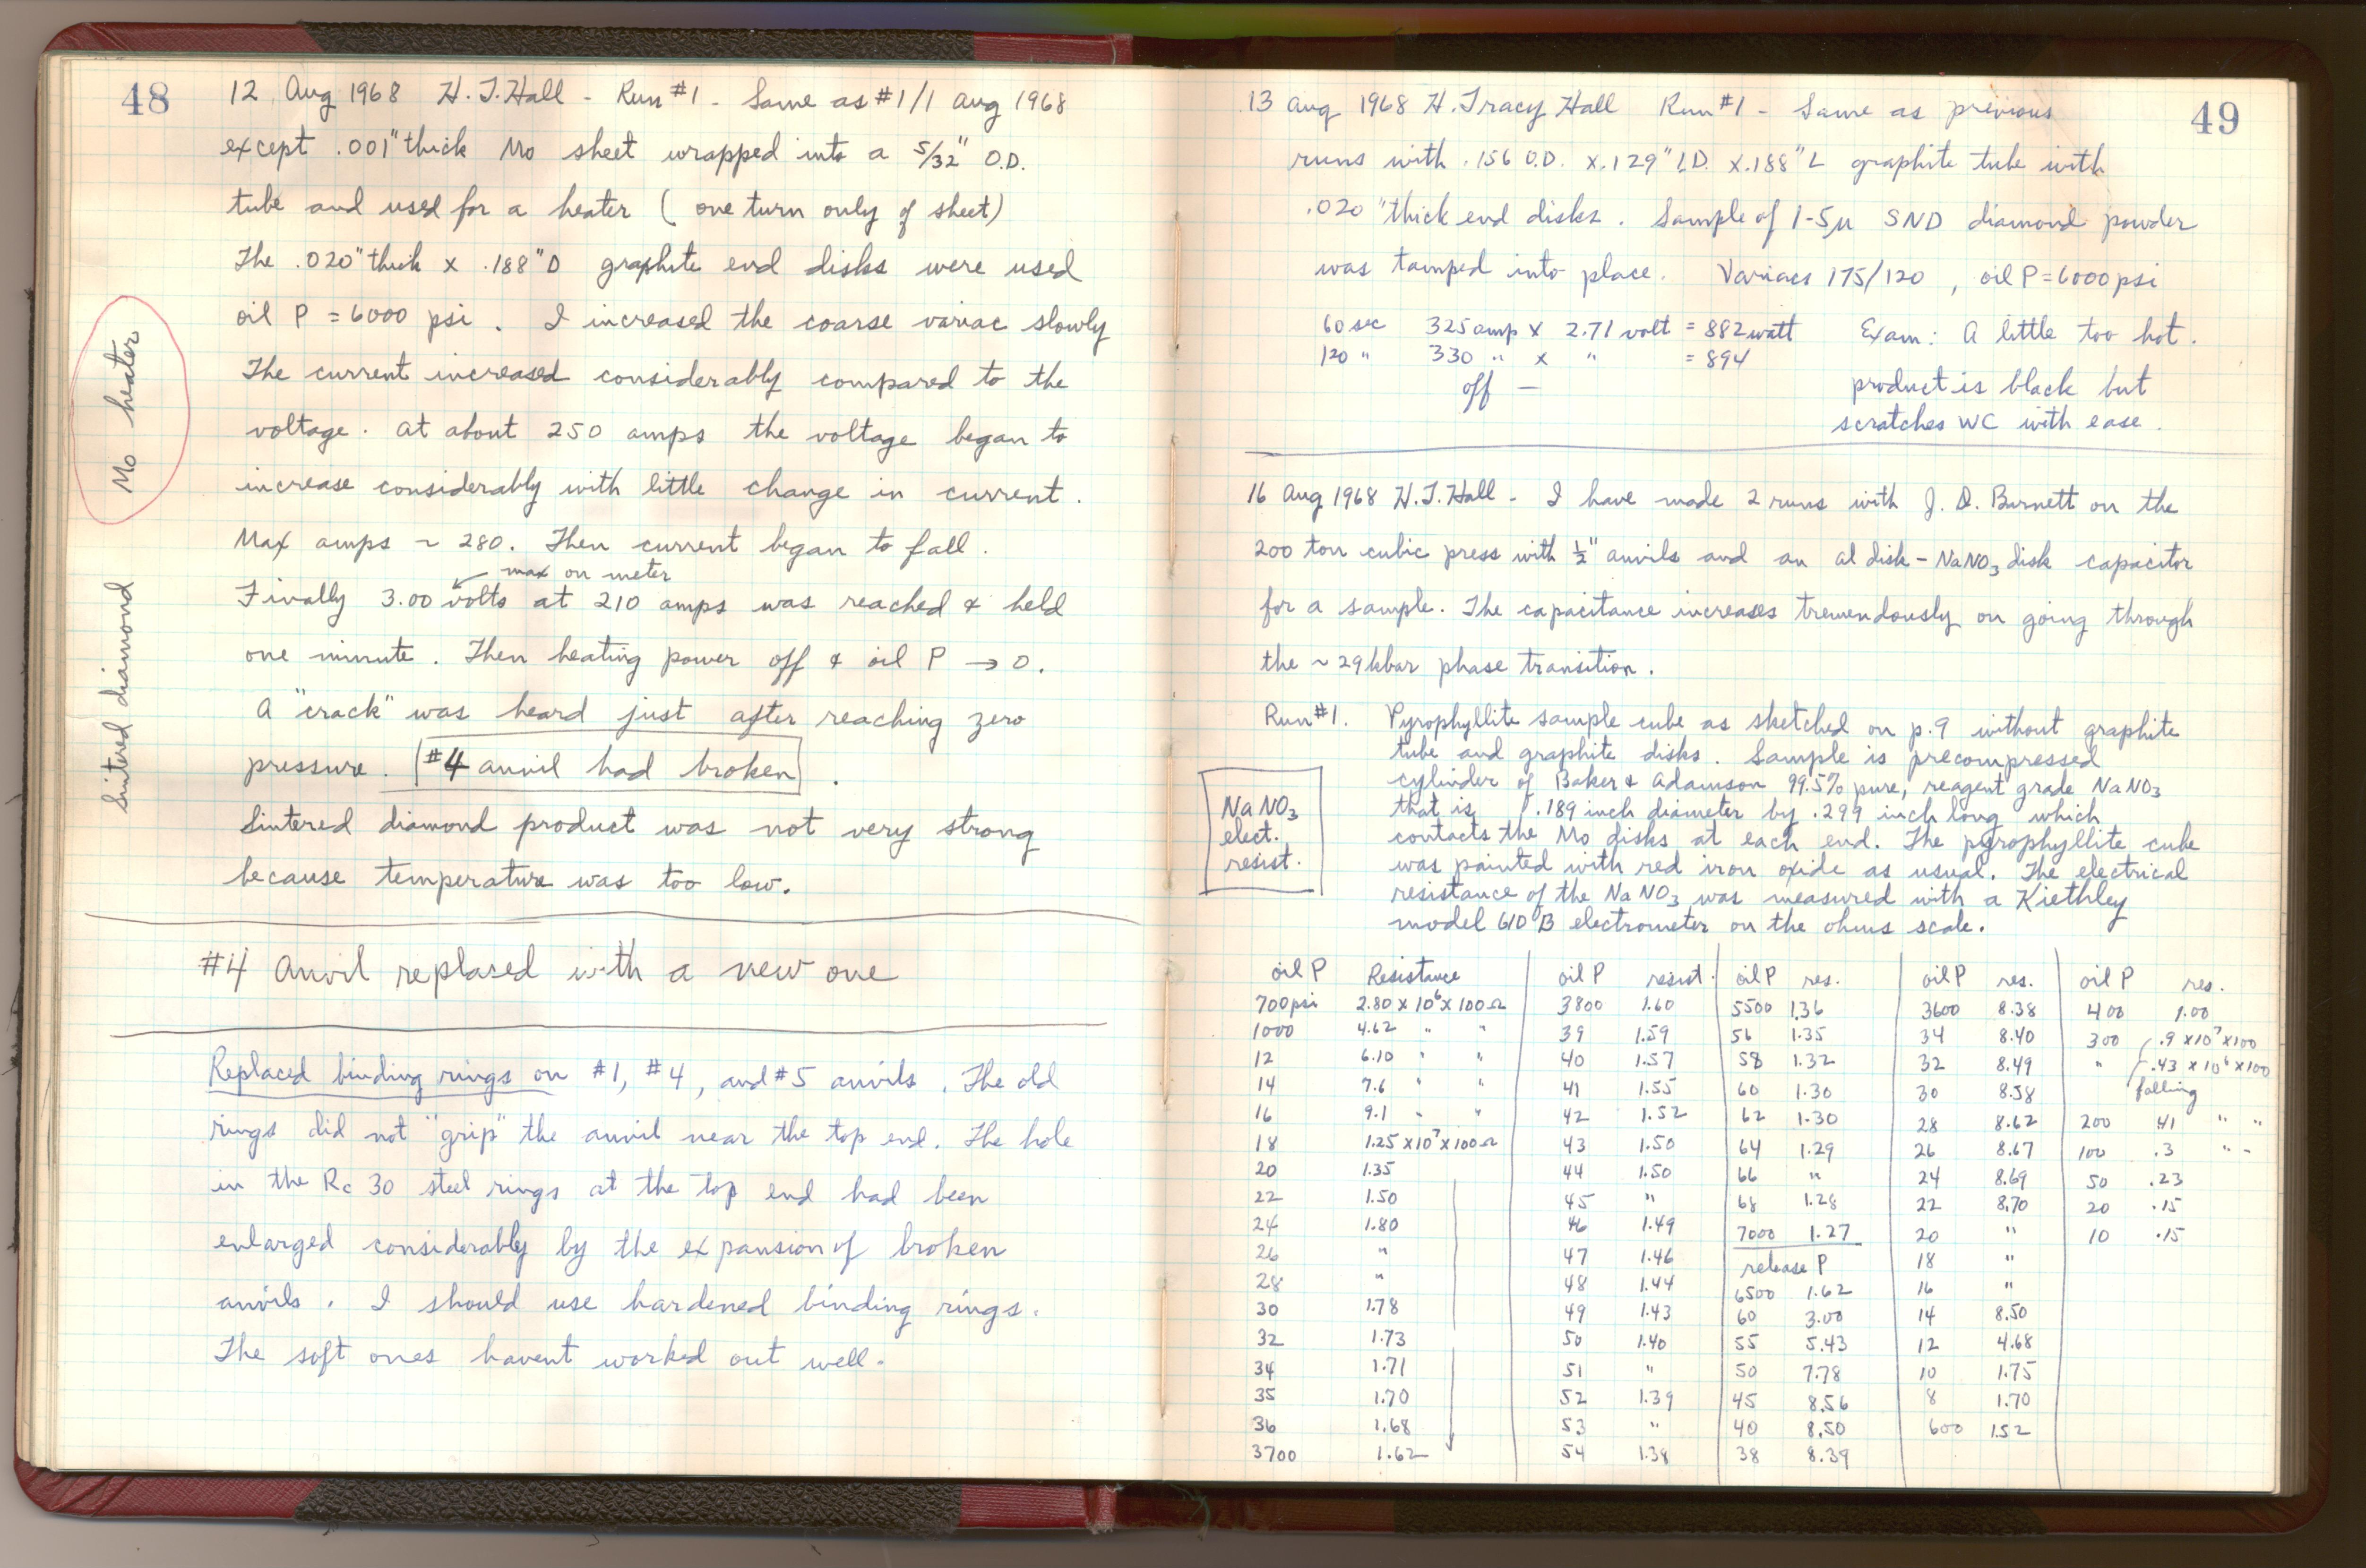 48
12 Aug 1968 H.T.Hall - Run #1 - Same as #1/1 Aug 1968
except .001" thick Mo sheet wrapped into a 5/32" O.D.
tube and used for a heater ( one turn only of sheet)
The .020" thick x .188" D graphite end disks were used
oil P = 6000 psi . I increased the coarse variac slowly
The current increased considerably compared to the
voltage. At about 250 amps the voltage began to
increase considerably with little change in current.
Max amps ~ 280. Then current began to fall.
max on meter
Finally 3.00 volts at 210 amps was reached & held
one minute. Then heating power off & oil P → 0.
A "crack" was heard just after reaching zero
pressure. #4 anvil had broken.
Sintered diamond product was not very strong
because temperature was too low.
Mo heater
sintered diamond
#4 Anvil replased with a new one
Replaced binding rings on #1, #4, and #5 anvils. The old
rings did not "grip" the anvil near the top end. The hole
in the Rc 30 steel rings at the top end had been
enlarged considerably by the expansion of broken
anvils. I should use hardened binding rings.
The soft ones havent worked out well.
49
13 Aug 1968 H. Tracy Hall Run #1 - Same as previous
runs with .156 O.D. x .129" I.D. x .188" L graphite tube with
.020" thick end disks. Sample of 1-5µ SND diamond powder
was tamped into place. Variacs 175/120, oil P = 6000 psi
60 sec 325 amp x 2.71 volt = 882 watt Exam: A little too hot.
120 " 330 " x " = 894
off — product is black but
scratches WC with ease.
16 Aug 1968 H.T.Hall - I have made 2 runs with J. D. Barnett on the
200 ton cubic press with ½" anvils and an Al disk - NaNO3 disk capacitor
for a sample. The capacitance increases tremendously on going through
the ~ 29 kbar phase transition.
Run #1. Pyrophyllite sample cube as sketched on p.9 without graphite
tube and graphite disks. Sample is precompressed
cylinder of Baker & Adamson 99.5% pure, reagent grade NaNO3
that is .189 inch diameter by .299 inch long which
contacts the Mo disks at each end. The pyrophyllite cube
was painted with red iron oxide as usual. The electrical
resistance of the NaNO3 was measured with a Kiethley
model 610 B electrometer on the ohms scale.
NaNO3
elect.
resist.
oil P Resistance oil P resist. oil P res. oil P res. oil P res.
700 psi 2.80 x 10⁶ x 100 Ω 3800 1.60 5500 1.36 3600 8.38 400 1.00
1000 4.62 " " 39 1.59 56 1.35 34 8.40 300 .9 x 10⁷ x 100
12 6.10 " " 40 1.57 58 1.32 32 8.49 " .43 x 10⁶ x 100
14 7.6 " " 41 1.55 60 1.30 30 8.58 falling
16 9.1 " " 42 1.52 62 1.30 28 8.62 200 .41 " "
18 1.25 x 10⁷ x 100 Ω 43 1.50 64 1.29 26 8.67 100 .3 " "
20 1.35 44 1.50 66 " 24 8.69 50 .23
22 1.50 45 " 68 1.28 22 8.70 20 .15
24 1.80 46 1.49 7000 1.27 20 " 10 .15
26 " 47 1.46 release P 18 "
28 " 48 1.44 6500 1.62 16 "
30 1.78 49 1.43 60 3.00 14 8.50
32 1.73 50 1.40 55 5.43 12 4.68
34 1.71 51 " 50 7.78 10 1.75
35 1.70 52 1.39 45 8.56 8 1.70
36 1.68 53 " 40 8.50 600 1.52
3700 1.62 54 1.38 38 8.39